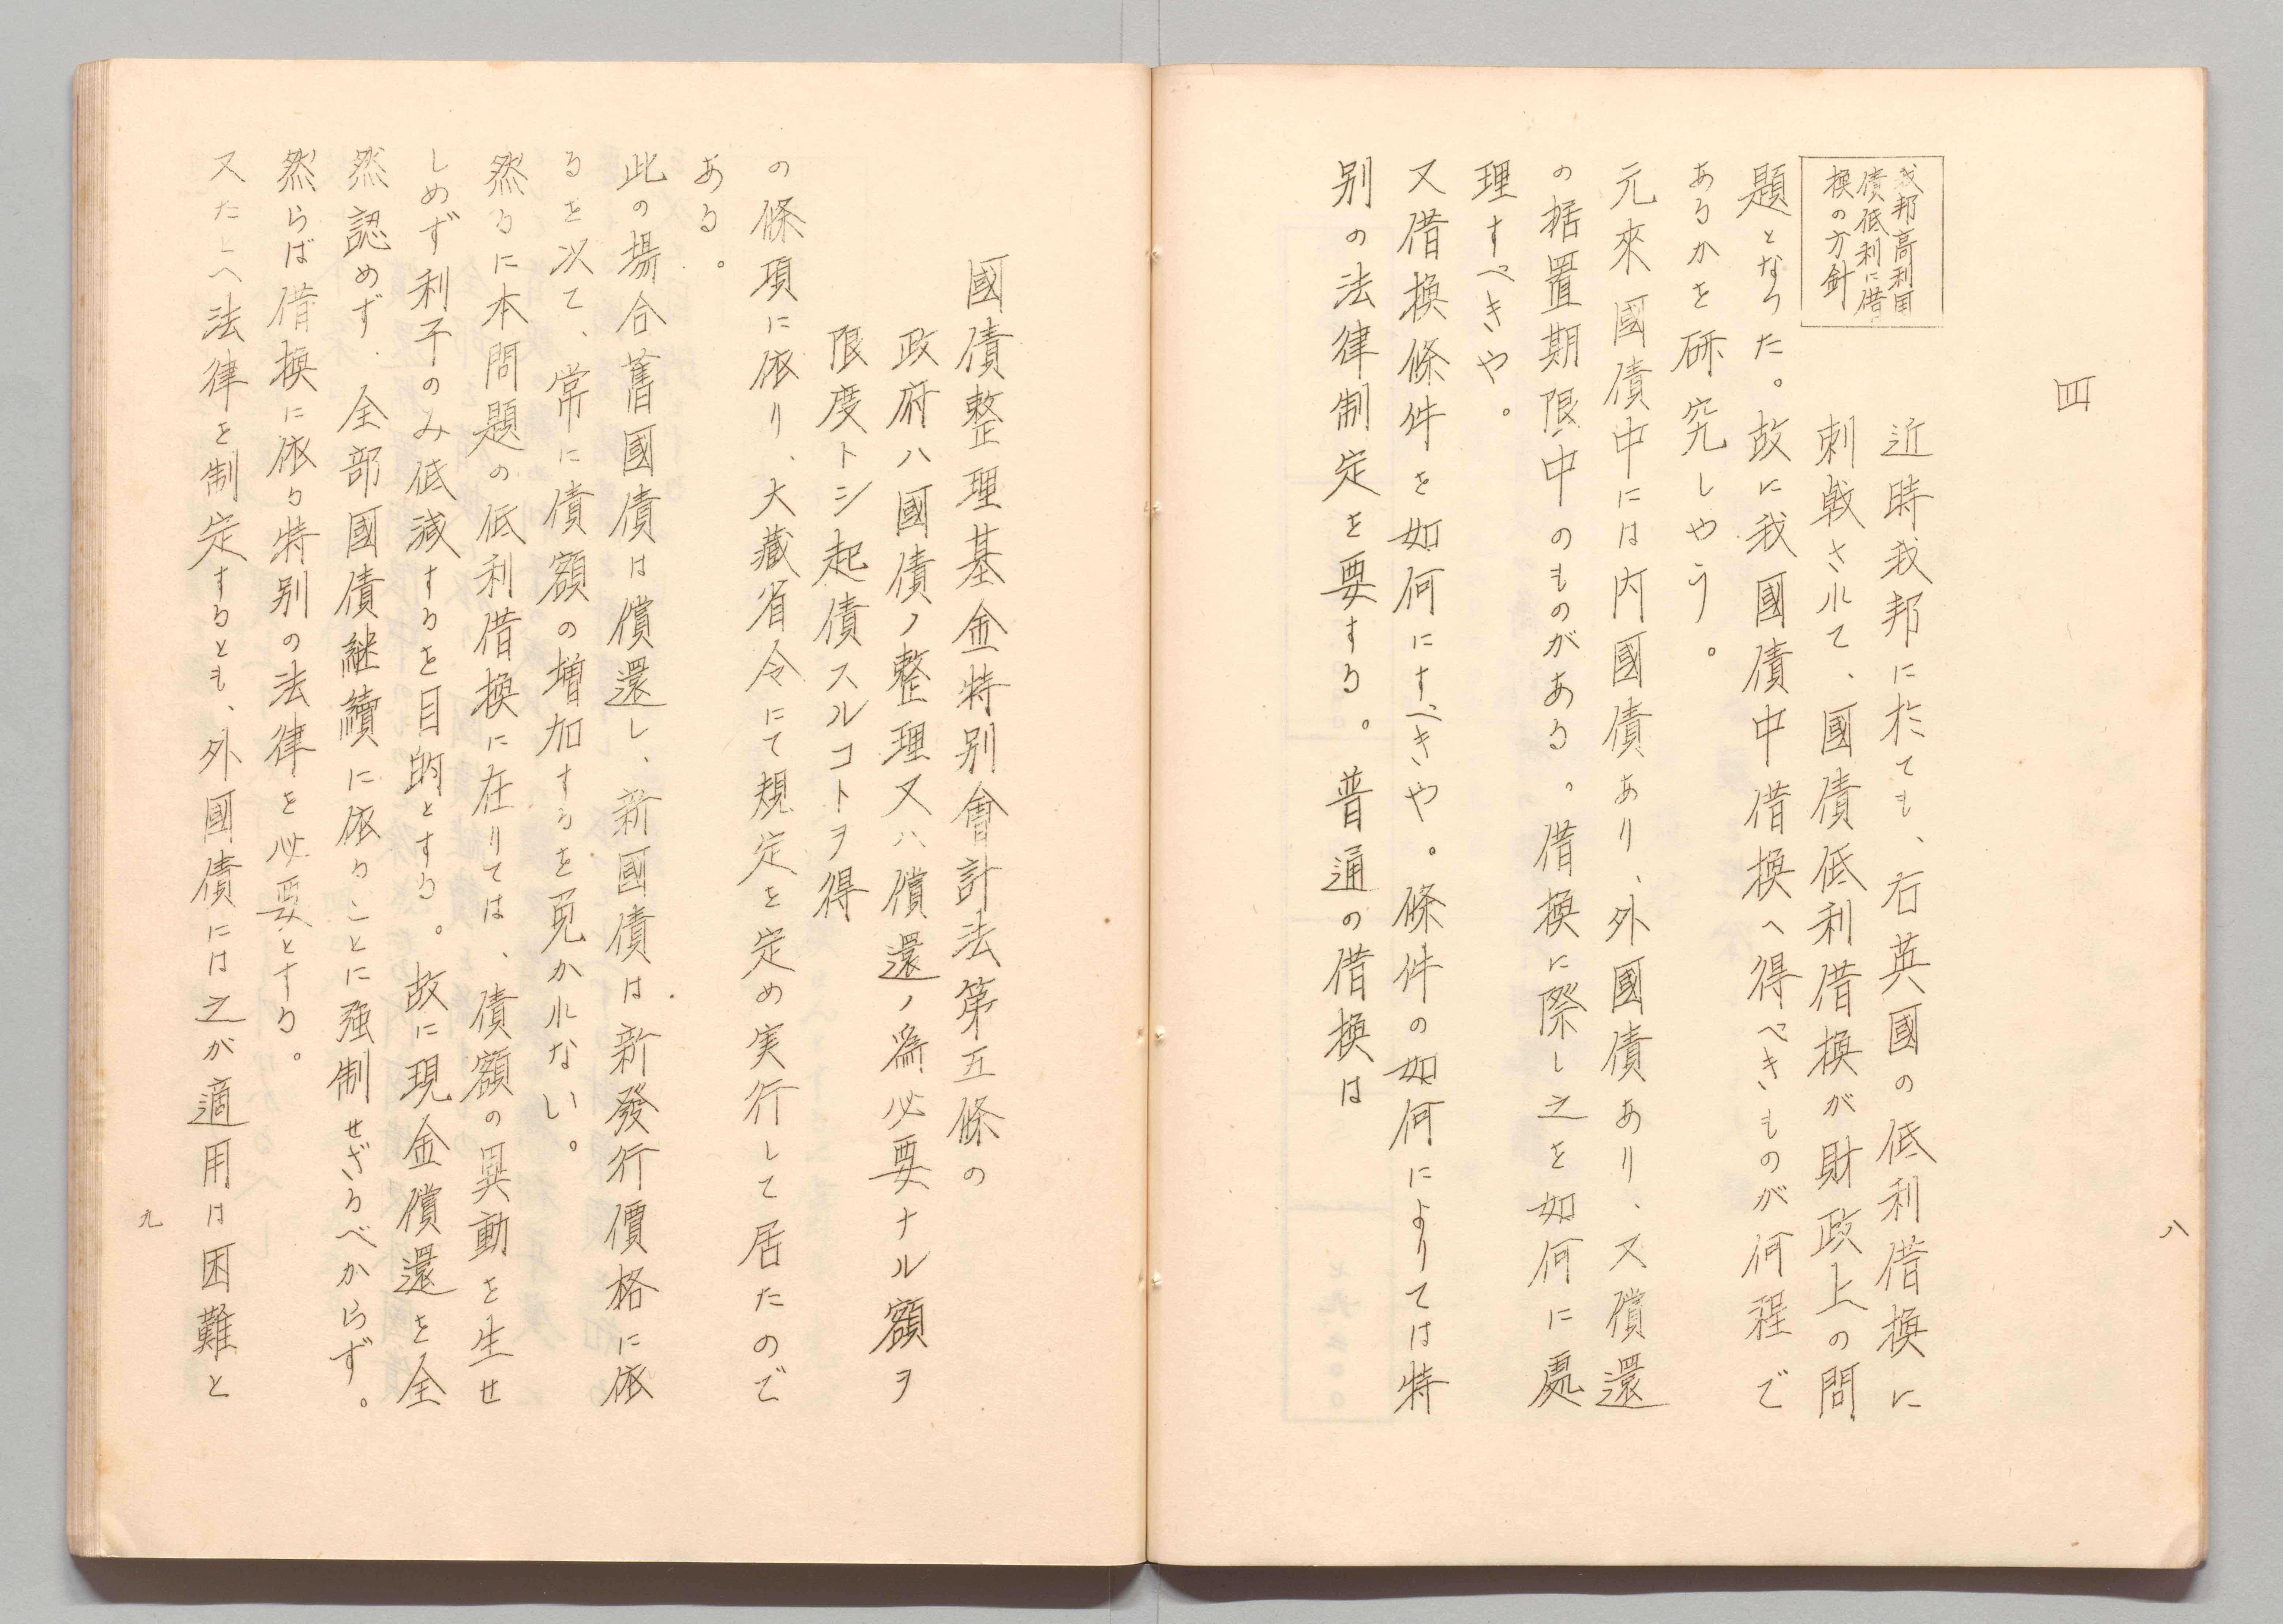 四
我邦高利国
債低利に借
換の方針
近時我邦に於ても、右英國の低利借換に
刺戟されて、國債低利借換が財政上の問
題となつた。故に我國債中借換へ得べきものが何程で
あるかを研究しやう。
元來國債中には内國債あり、外國債あり、又償還
の据置期限中のものがある。借換に際し之を如何に處
理すべきや。
又借換條件を如何にすべきや。條件の如何によりては特
別の法律制定を要する。普通の借換は
八
國債整理基金特別會計法第五條の
政府ハ國債ノ整理又ハ償還ノ爲必要ナル額ヲ
限度トシ起債スルコトヲ得
の條項に依り、大藏省令にて規定を定め実行して居たので
ある。
此の場合舊國債は償還し、新國債は新發行價格に依
るを以て、常に債額の増加するを免かれない。
然るに本問題の低利借換に在りては、債額の異動を生せ
しめず利子のみ低減するを目的とする。故に現金償還を全
然認めず、全部國債継續に依ることに強制せざるべからず。
然らば借換に依る特別の法律を必要とする。
又たとへ法律を制定するとも、外國債には之が適用は困難と
九